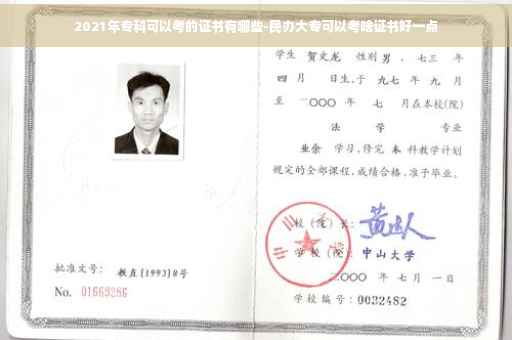 2021年专科可以考的证书有哪些-民办大专可以考啥证书好一点
学生 贺文龙 性别 男 、七三 年
四 月 日生,于 九七 年 九 月
至 二〇〇〇 年 七 月在本校(院)
法 学 专业
业余 学习,修完 本 科教学计划
规定的全部课程,成绩合格,准予毕业。
校(院)长:
学校(院): 中山大学
二〇〇〇 年 七 月 一 日
批准文号: 教直[1993]8号
No. 01669286
学校编号: 0032482